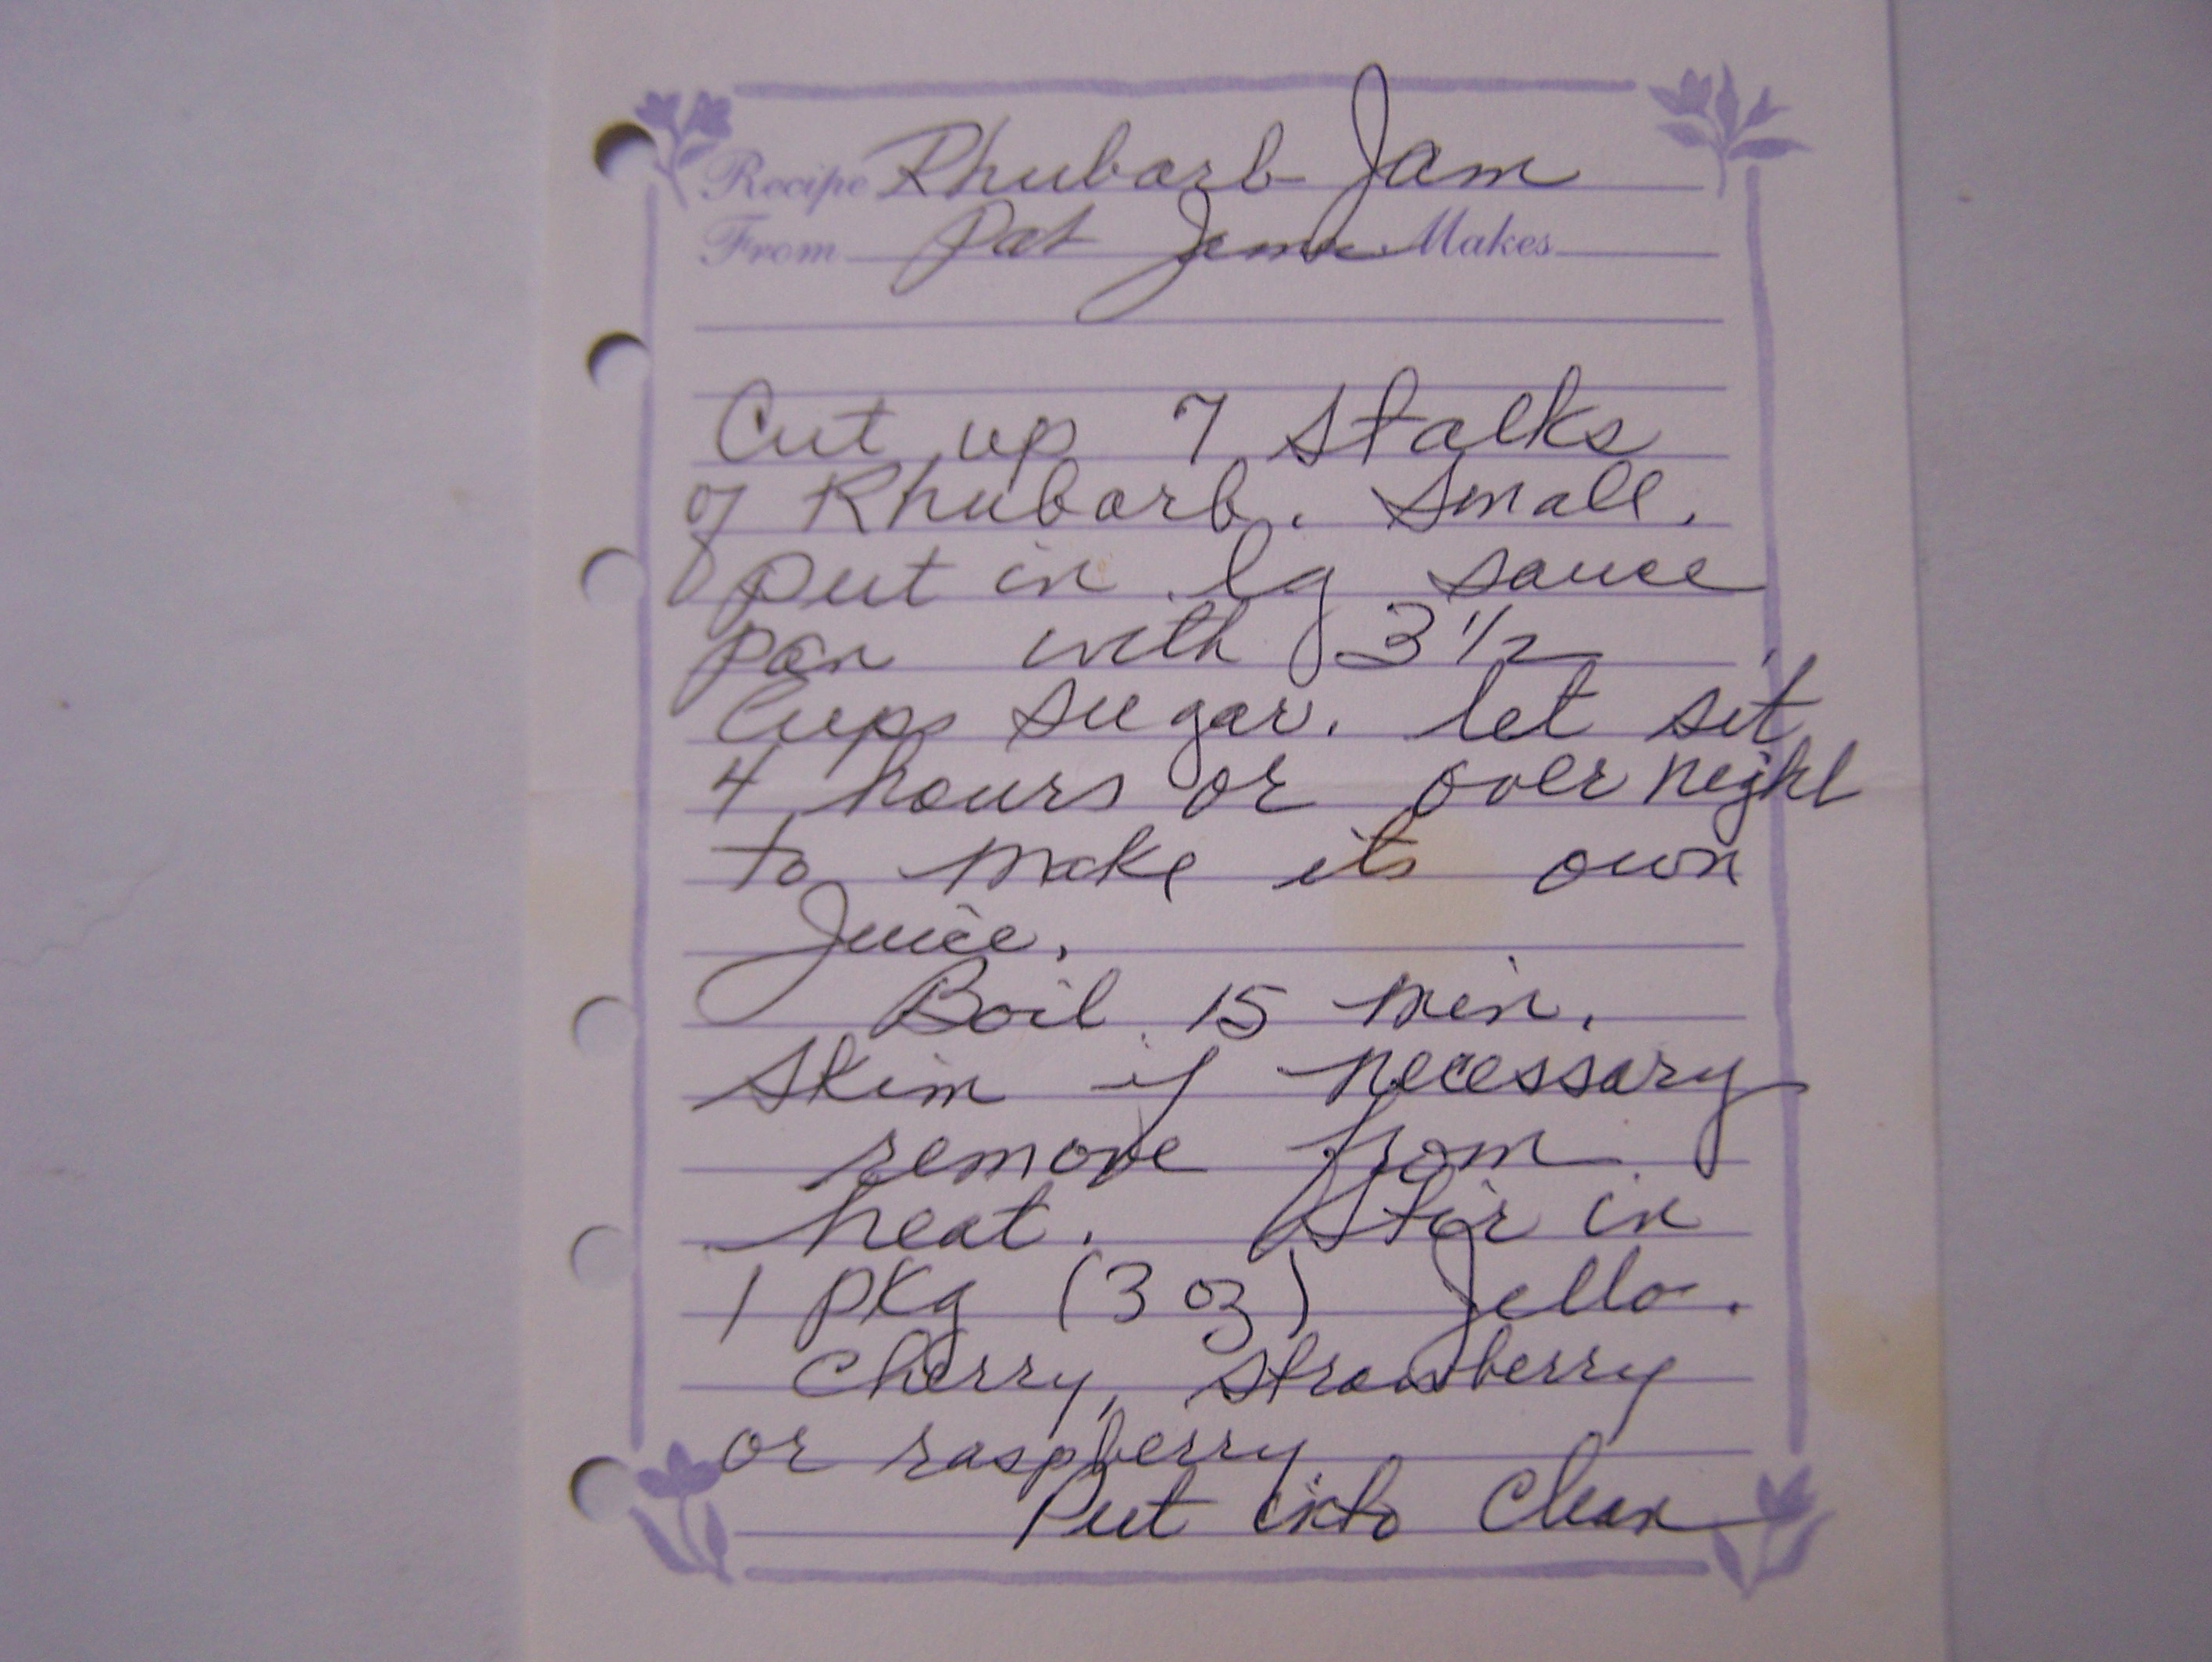 Recipe Rhubarb Jam
From Pat Makes
Cut up 7 stalks
of Rhubarb. Small.
put in lg sauce
pan with 3 1/2
Cups sugar. let set
4 hours or over night
to make its own
Juice.
Boil 15 min.
Skim if necessary
remove from
heat. Stir in
1 pkg (3 oz) Jello.
Cherry, strawberry
or raspberry
Put into clean